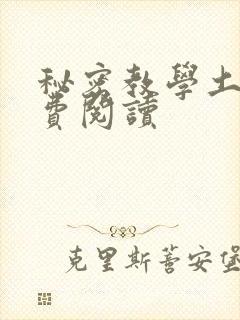 秘密教學土
費閱讀
克里斯蒂安堡